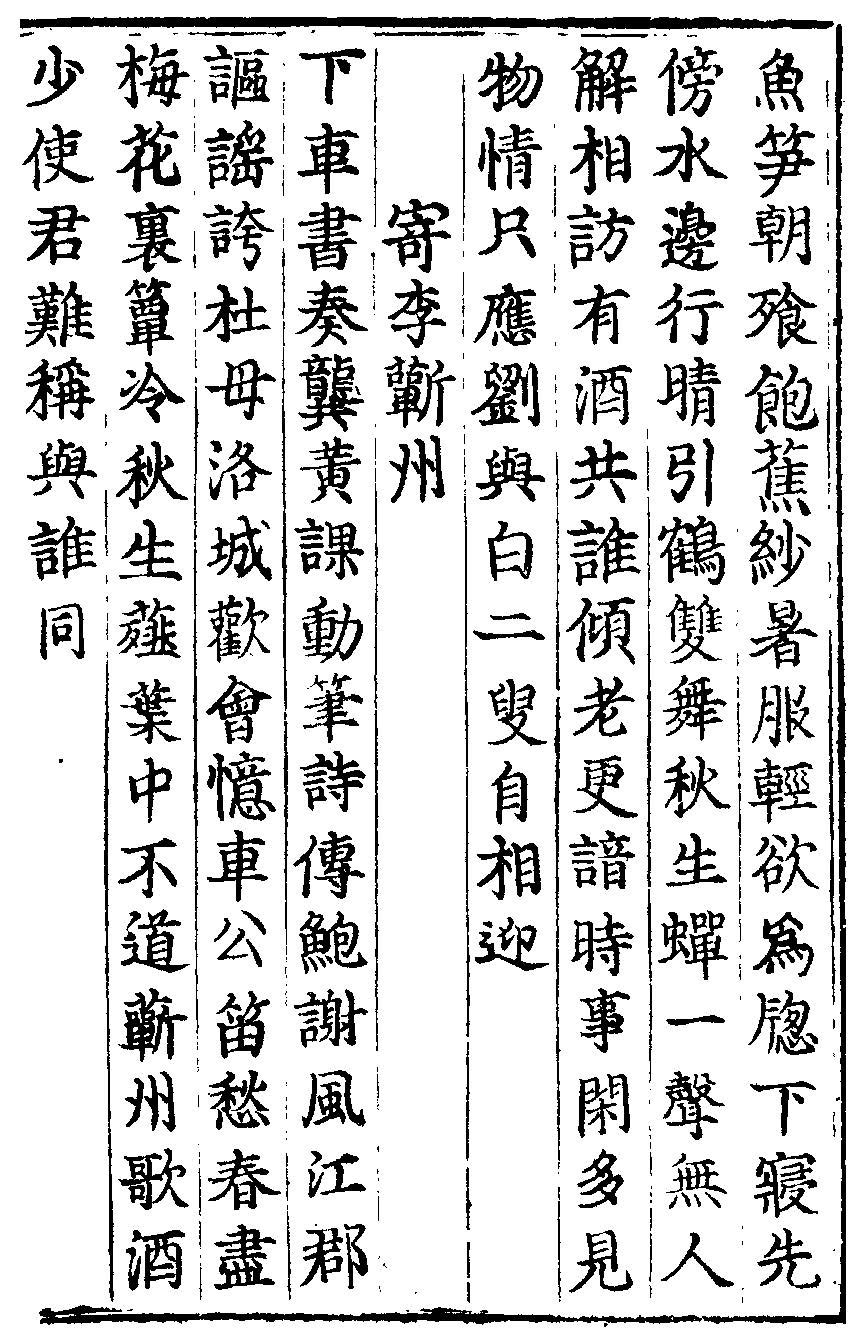 魚笋朝飱飽蕉紗暑服輕欲爲牎下寢先
傍水邊行晴引鶴雙舞秋生蟬一聲無人
解相訪有酒共誰傾老更諳時事閑多見
物情只應劉與白二叟自相迎
寄李蘄州
下車書奏龔黃課動筆詩傳鮑謝風江郡
謳謠誇杜母洛城歡會憶車公笛愁春盡
梅花裏簟冷秋生薤葉中不道蘄州歌酒
少使君難稱與誰同